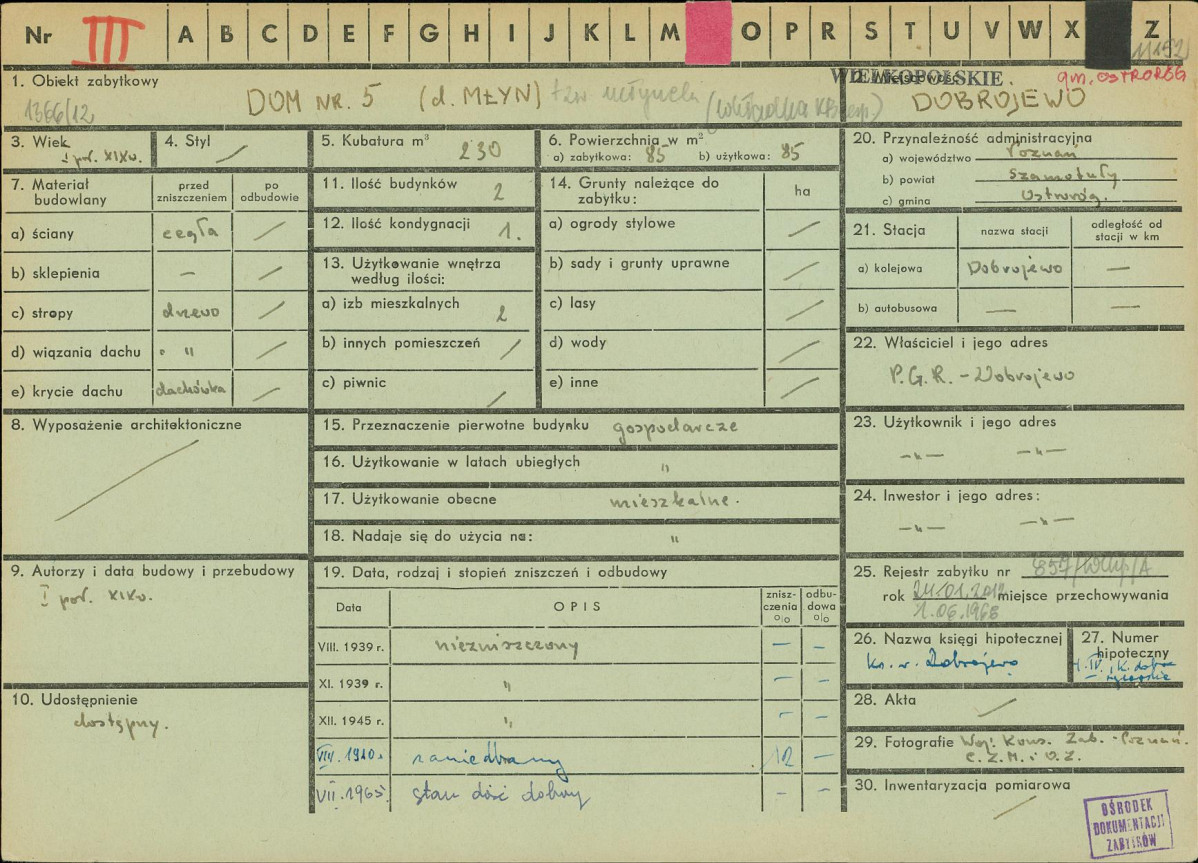 Nr III A B C D E F G H I J K L M O P R S T U V W X Z
11152
1. Obiekt zabytkowy
1366/12
DOM NR. 5 (d. MŁYN) tzw
WIELKOPOLSKIE.
gm. OSTRORÓG
DOBROJEWO
3. Wiek
I poł. XIXw.
4. Styl
5. Kubatura m³
230
6. Powierzchnia w m²
a) zabytkowa: 85 b) użytkowa: 85
7. Materiał budowlany
przed zniszczeniem
po odbudowie
a) ściany cegła
b) sklepienia –
c) stropy drzewo
d) wiązania dachu "
e) krycie dachu dachówka
8. Wyposażenie architektoniczne
9. Autorzy i data budowy i przebudowy
I poł. XIXw.
10. Udostępnienie
dostępny.
11. Ilość budynków 2
12. Ilość kondygnacji 1.
13. Użytkowanie wnętrza według ilości:
a) izb mieszkalnych 2
b) innych pomieszczeń
c) piwnic
14. Grunty należące do zabytku:
ha
a) ogrody stylowe
b) sady i grunty uprawne
c) lasy
d) wody
e) inne
15. Przeznaczenie pierwotne budynku gospodarcze
16. Użytkowanie w latach ubiegłych "
17. Użytkowanie obecne mieszkalne.
18. Nadaje się do użycia na: "
19. Data, rodzaj i stopień zniszczeń i odbudowy
Data
OPIS
znisz-czenia o|o
odbu-dowa o|o
VIII. 1939 r. niezniszczony – –
XI. 1939 r. " – –
XII. 1945 r. " – –
zaniedbany 12 –
VII. 1965 stan dość dobry – –
20. Przynależność administracyjna
a) województwo Poznań
b) powiat Szamotuły
c) gmina Ostroróg.
21. Stacja
nazwa stacji
odległość od stacji w km
a) kolejowa Dobrojewo —
b) autobusowa — —
22. Właściciel i jego adres
P.G.R. – Dobrojewo
23. Użytkownik i jego adres
–"– –"–
24. Inwestor i jego adres:
–"– –"–
25. Rejestr zabytku nr 857/Wlkp/A
rok 24.01.2012 miejsce przechowywania
1.06.1968
26. Nazwa księgi hipotecznej
ks. w. Dobrojewo
27. Numer hipoteczny
28. Akta
29. Fotografie Woj. Kons. Zab. - Poznań.
C.Z.M. i O.Z.
30. Inwentaryzacja pomiarowa
OŚRODEK
DOKUMENTACJI
ZABYTKÓW